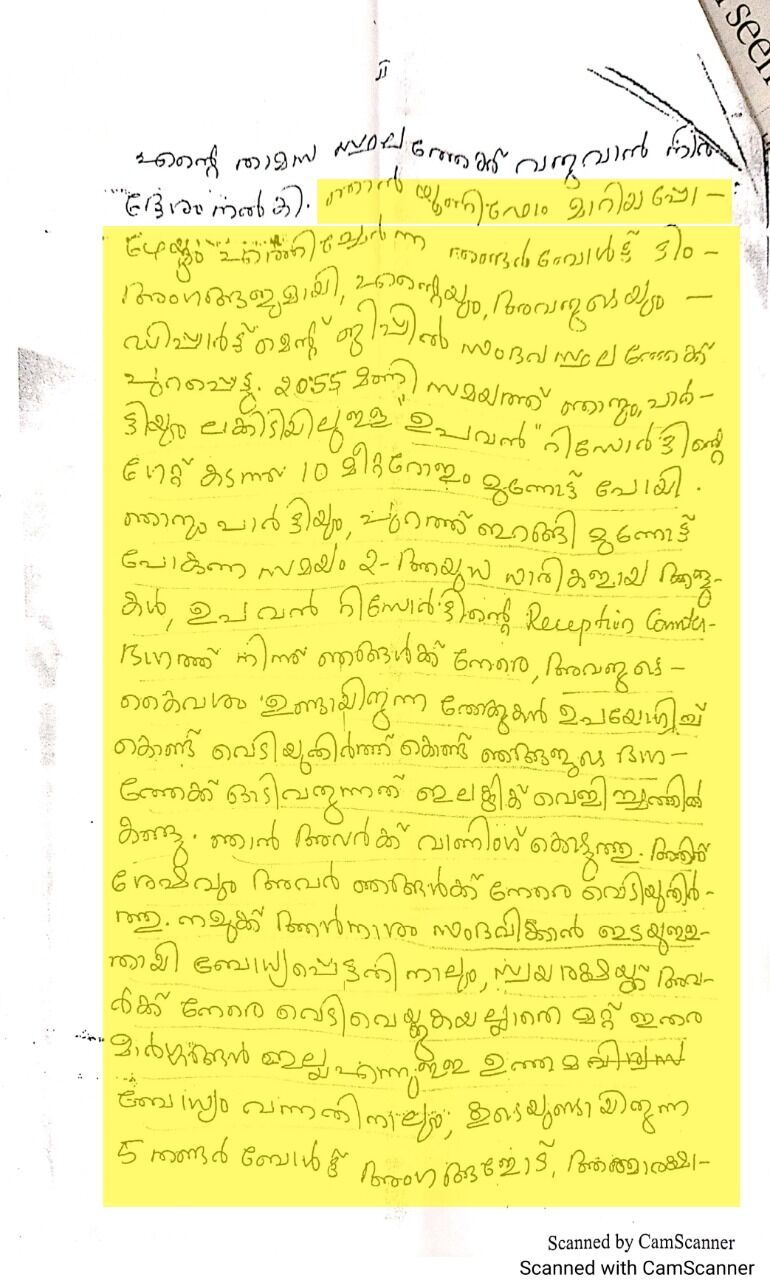 seen
II
എന്റെ താമസ സ്ഥലത്തേക്ക് വരുവാൻ നിർ
ദ്ദേശം നൽകി. ഞാൻ യൂണിഫോം മാറിയപ്പോ-
ഴേയ്ക്കും എത്തിച്ചേർന്ന തണ്ടർബോൾട്ട് ടീം -
അംഗങ്ങളുമായി, എന്റെയും, അവരുടെയും -
ഡിപ്പാർട്ട്മെന്റ് ജീപ്പിൽ സംഭവ സ്ഥലത്തേക്ക്
പുറപ്പെട്ടു. 20:55 മണി സമയത്ത് ഞാനും, പാർ-
ട്ടിയും ലക്കിടിയിലുള്ള "ഉപവൻ" റിസോർട്ടിന്റെ
ഗേറ്റ് കടന്ന് 10 മീറ്ററോളം മുന്നോട്ട് പോയി.
ഞാനും പാർട്ടിയും, പുറത്ത് ഇറങ്ങി മുന്നോട്ട്
പോകുന്ന സമയം 2-ആയുധ ധാരികളായ ആളു-
കൾ, ഉപവൻ റിസോർട്ടിന്റെ Reception Counter-
ഭാഗത്ത് നിന്ന് ഞങ്ങൾക്ക് നേരെ, അവരുടെ -
കൈവശം ഉണ്ടായിരുന്ന തോക്കുകൾ ഉപയോഗിച്ച്
കൊണ്ട് വെടിയുതിർത്ത് കൊണ്ട് ഞങ്ങളുടെ ഭാഗ-
ത്തേക്ക് ഓടിവരുന്നത് ഇലക്ട്രിക് വെളിച്ചത്തിൽ
കണ്ടു. ഞാൻ അവർക്ക് വാണിംഗ് കൊടുത്തു. അതിന്
ശേഷവും അവർ ഞങ്ങൾക്ക് നേരെ വെടിയുതിർ-
ത്തു. നമുക്ക് ആൾനാശം സംഭവിക്കാൻ ഇടയുള്ള-
തായി ബോധ്യപ്പെട്ടതിനാലും, സ്വയരക്ഷയ്ക്ക് അവ-
ർക്ക് നേരെ വെടിവെയ്ക്കുകയല്ലാതെ മറ്റ് ഇതര
മാർഗങ്ങൾ ഇല്ല എന്നുള്ള ഉത്തമവിശ്വാസ
ബോധ്യം വന്നതിനാലും, കൂടെയുണ്ടായിരുന്ന
5 തണ്ടർ ബോൾട്ട് അംഗങ്ങളോട്, ആത്മരക്ഷാ-
Scanned by CamScanner
Scanned with CamScanner